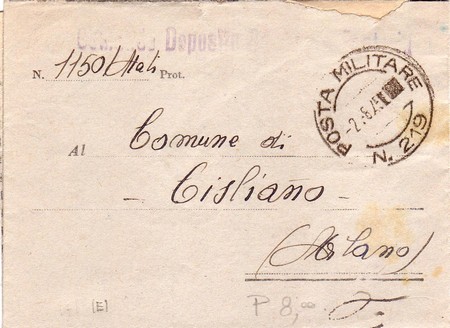 Deposito
N. 1150/Mati Prot.
POSTA MILITARE
N. 219
-2.8.4
Al Comune di
Cisliano
(Milano)
[E]
P 8,=